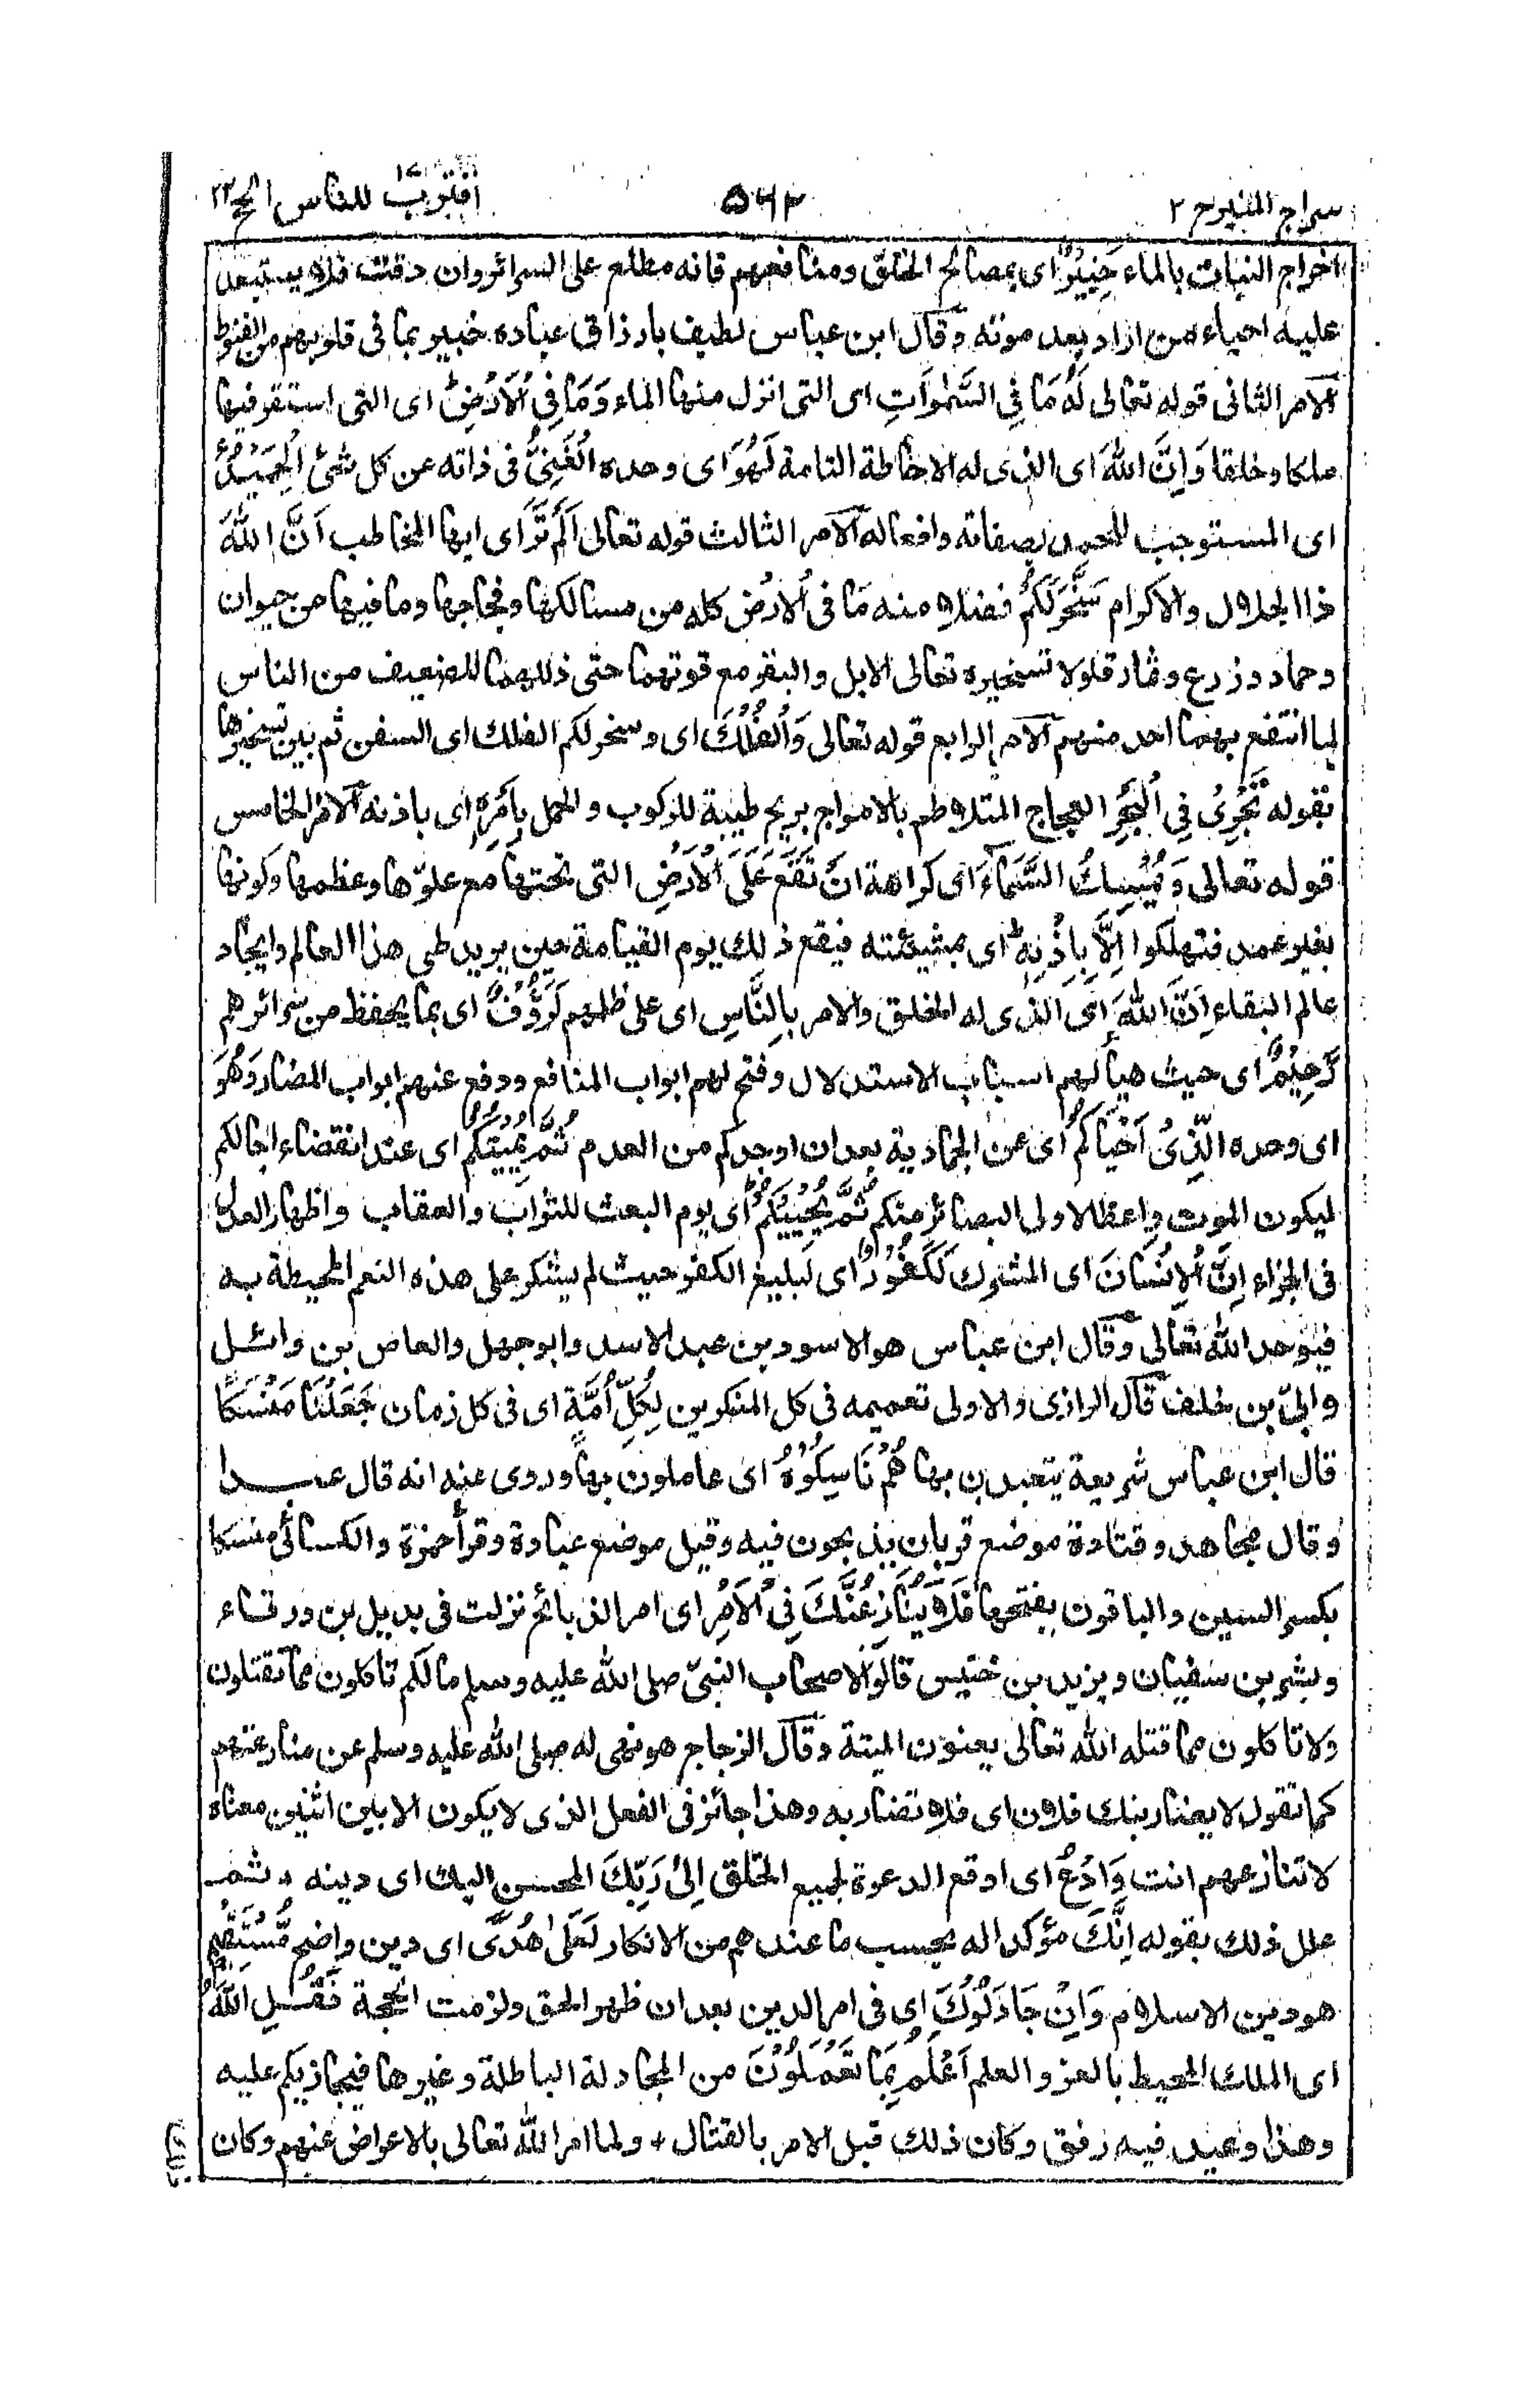 سراج المنيرج ٢
٥٦٢
اقترب للناس الحج ٢٣
اخراج النبات بالماء خَبِيْرٌ اى بمصالح الخلق ومنافعهم فانه مطلع على السرائر وان دقت فلا يستبعد
عليه احياء من اراد بعد موته وقال ابن عباس لطيف بارزاق عباده خبير بما فى قلوبهم من القنوط
الامر الثانى قوله تعالى لَهُ مَا فِي السَّمٰوَاتِ اى التى انزل منها الماء وَمَا فِي الْاَرْضِ اى التى استقر فيها
ملكا وخلقا وَاِنَّ اللّٰهَ اى الذى له الاحاطة التامة لَهُوَ اى وحده الْغَنِيُّ فى ذاته عن كل شئ الْحَمِيْدُ
اى المستوجب للحمد بصفاته وافعاله الامر الثالث قوله تعالى اَلَمْ تَرَ اى ايها المخاطب اَنَّ اللّٰهَ
ذا الجلال والاكرام سَخَّرَ لَكُمْ فضلا منه مَا فى الْاَرْضِ كله من مسالكها وفجاجها وما فيها من حيوان
وجماد وزرع وثمار فلولا تسخيره تعالى الابل والبقر مع قوتهما حتى ذللهما للضعيف من الناس
لما انتفع بهما احد منهم الامر الرابع قوله تعالى وَالْفُلْكَ اى وسخر لكم الفلك اى السفن ثم بين تسخيرها
بقوله تَجْرِيْ فِي الْبَحْرِ العجاج المتلاطم بالامواج بريح طيبة للركوب والحمل بِاَمْرِهٖ اى باذنه الامر الخامس
قوله تعالى وَيُمْسِكُ السَّمَاءَ اى كراهة اَنْ تَقَعَ عَلَى الْاَرْضِ التى تحتها مع علوّها وعظمها وكونها
بغير عمد فتهلكوا اِلَّا بِاِذْنِهٖ اى بمشيئته فيقع ذلك يوم القيامة حين يريد طى هذا العالم وايجاد
عالم البقاء اِنَّ اللّٰهَ اى الذى له الخلق والامر بِالنَّاسِ اى على ظلمهم لَرَؤُفٌ اى بما يحفظ من سرائرهم
رَّحِيْمٌ اى حيث هيأ لهم اسباب الاستدلال وفتح لهم ابواب المنافع ودفع عنهم ابواب المضار وَهُوَ
اى وحده الَّذِيْ اَحْيَاكُمْ اى عن الجمادية بعد ان اوجدكم من العدم ثُمَّ يُمِيْتُكُمْ اى عند انقضاء اجالكم
ليكون الموت واعظا لاولى البصائر منكم ثُمَّ يُحْيِيْكُمْ اى يوم البعث للثواب والعقاب واظهار العدل
فى الجزاء اِنَّ الْاِنْسَانَ اى المشرك لَكَفُوْرٌ اى لبليغ الكفر حيث لم يشكر على هذه النعم المحيطة به
فيوحد الله تعالى وقال ابن عباس هو الاسود بن عبد الاسد وابو جهل والعاص بن وائل
وابىّ بن خلف قال الرازى والاولى تعميمه فى كل المنكرين لِكُلِّ اُمَّةٍ اى فى كل زمان جَعَلْنَا مَنْسَكًا
قال ابن عباس شريعة يتعبدون بها هُمْ نَاسِكُوْهُ اى عاملون بها وروى عنه انه قال عيدا
وقال مجاهد وقتادة موضع قربان يذبحون فيه وقيل موضع عبادة وقرأ حمزة والكسائى منسكا
بكسر السين والباقون بفتحها فَلَا يُنَازِعُنَّكَ فِي الْاَمْرِ اى امر الذبائح نزلت فى بديل بن ورقاء
وبشر بن سفيان ويزيد بن خنيس قالوا لاصحاب النبىّ صلى الله عليه وسلم مالكم تاكلون مما تقتلون
ولا تاكلون مما قتله الله تعالى يعنون الميتة وقال الزجاج هو نهى له صلى الله عليه وسلم عن منازعتهم
كما تقول لا يضاربنك فلان اى فلا تضاربه وهذا جائز فى الفعل الذى لا يكون الا بين اثنين معناه
لا تنازعهم انت وَادْعُ اى اوقع الدعوة لجميع الخلق اِلٰى رَبِّكَ المحسن اليك اى دينه ثم
علل ذلك بقوله اِنَّكَ مؤكدا له بحسب ما عندهم من الانكار لَعَلٰى هُدًى اى دين واضح مُّسْتَقِيْمٍ
هو دين الاسلام وَاِنْ جَادَلُوْكَ اى فى امر الدين بعد ان ظهر الحق ولزمت الحجة فَقُلِ اللّٰهُ
اى الملك المحيط بالعز والعلم اَعْلَمُ بِمَا تَعْمَلُوْنَ من المجادلة الباطلة وغيرها فيجازيكم عليه
وهذا وعيد فيه رفق وكان ذلك قبل الامر بالقتال + ولما امر الله تعالى بالاعراض عنهم وكان